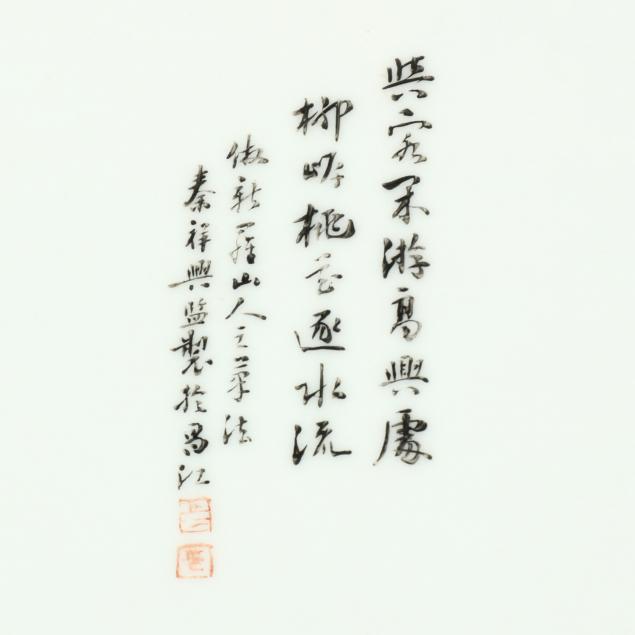 與客来游高興處
柳岸桃花逐水流
倣新羅山人之筆法
秦祥興監製於昌江